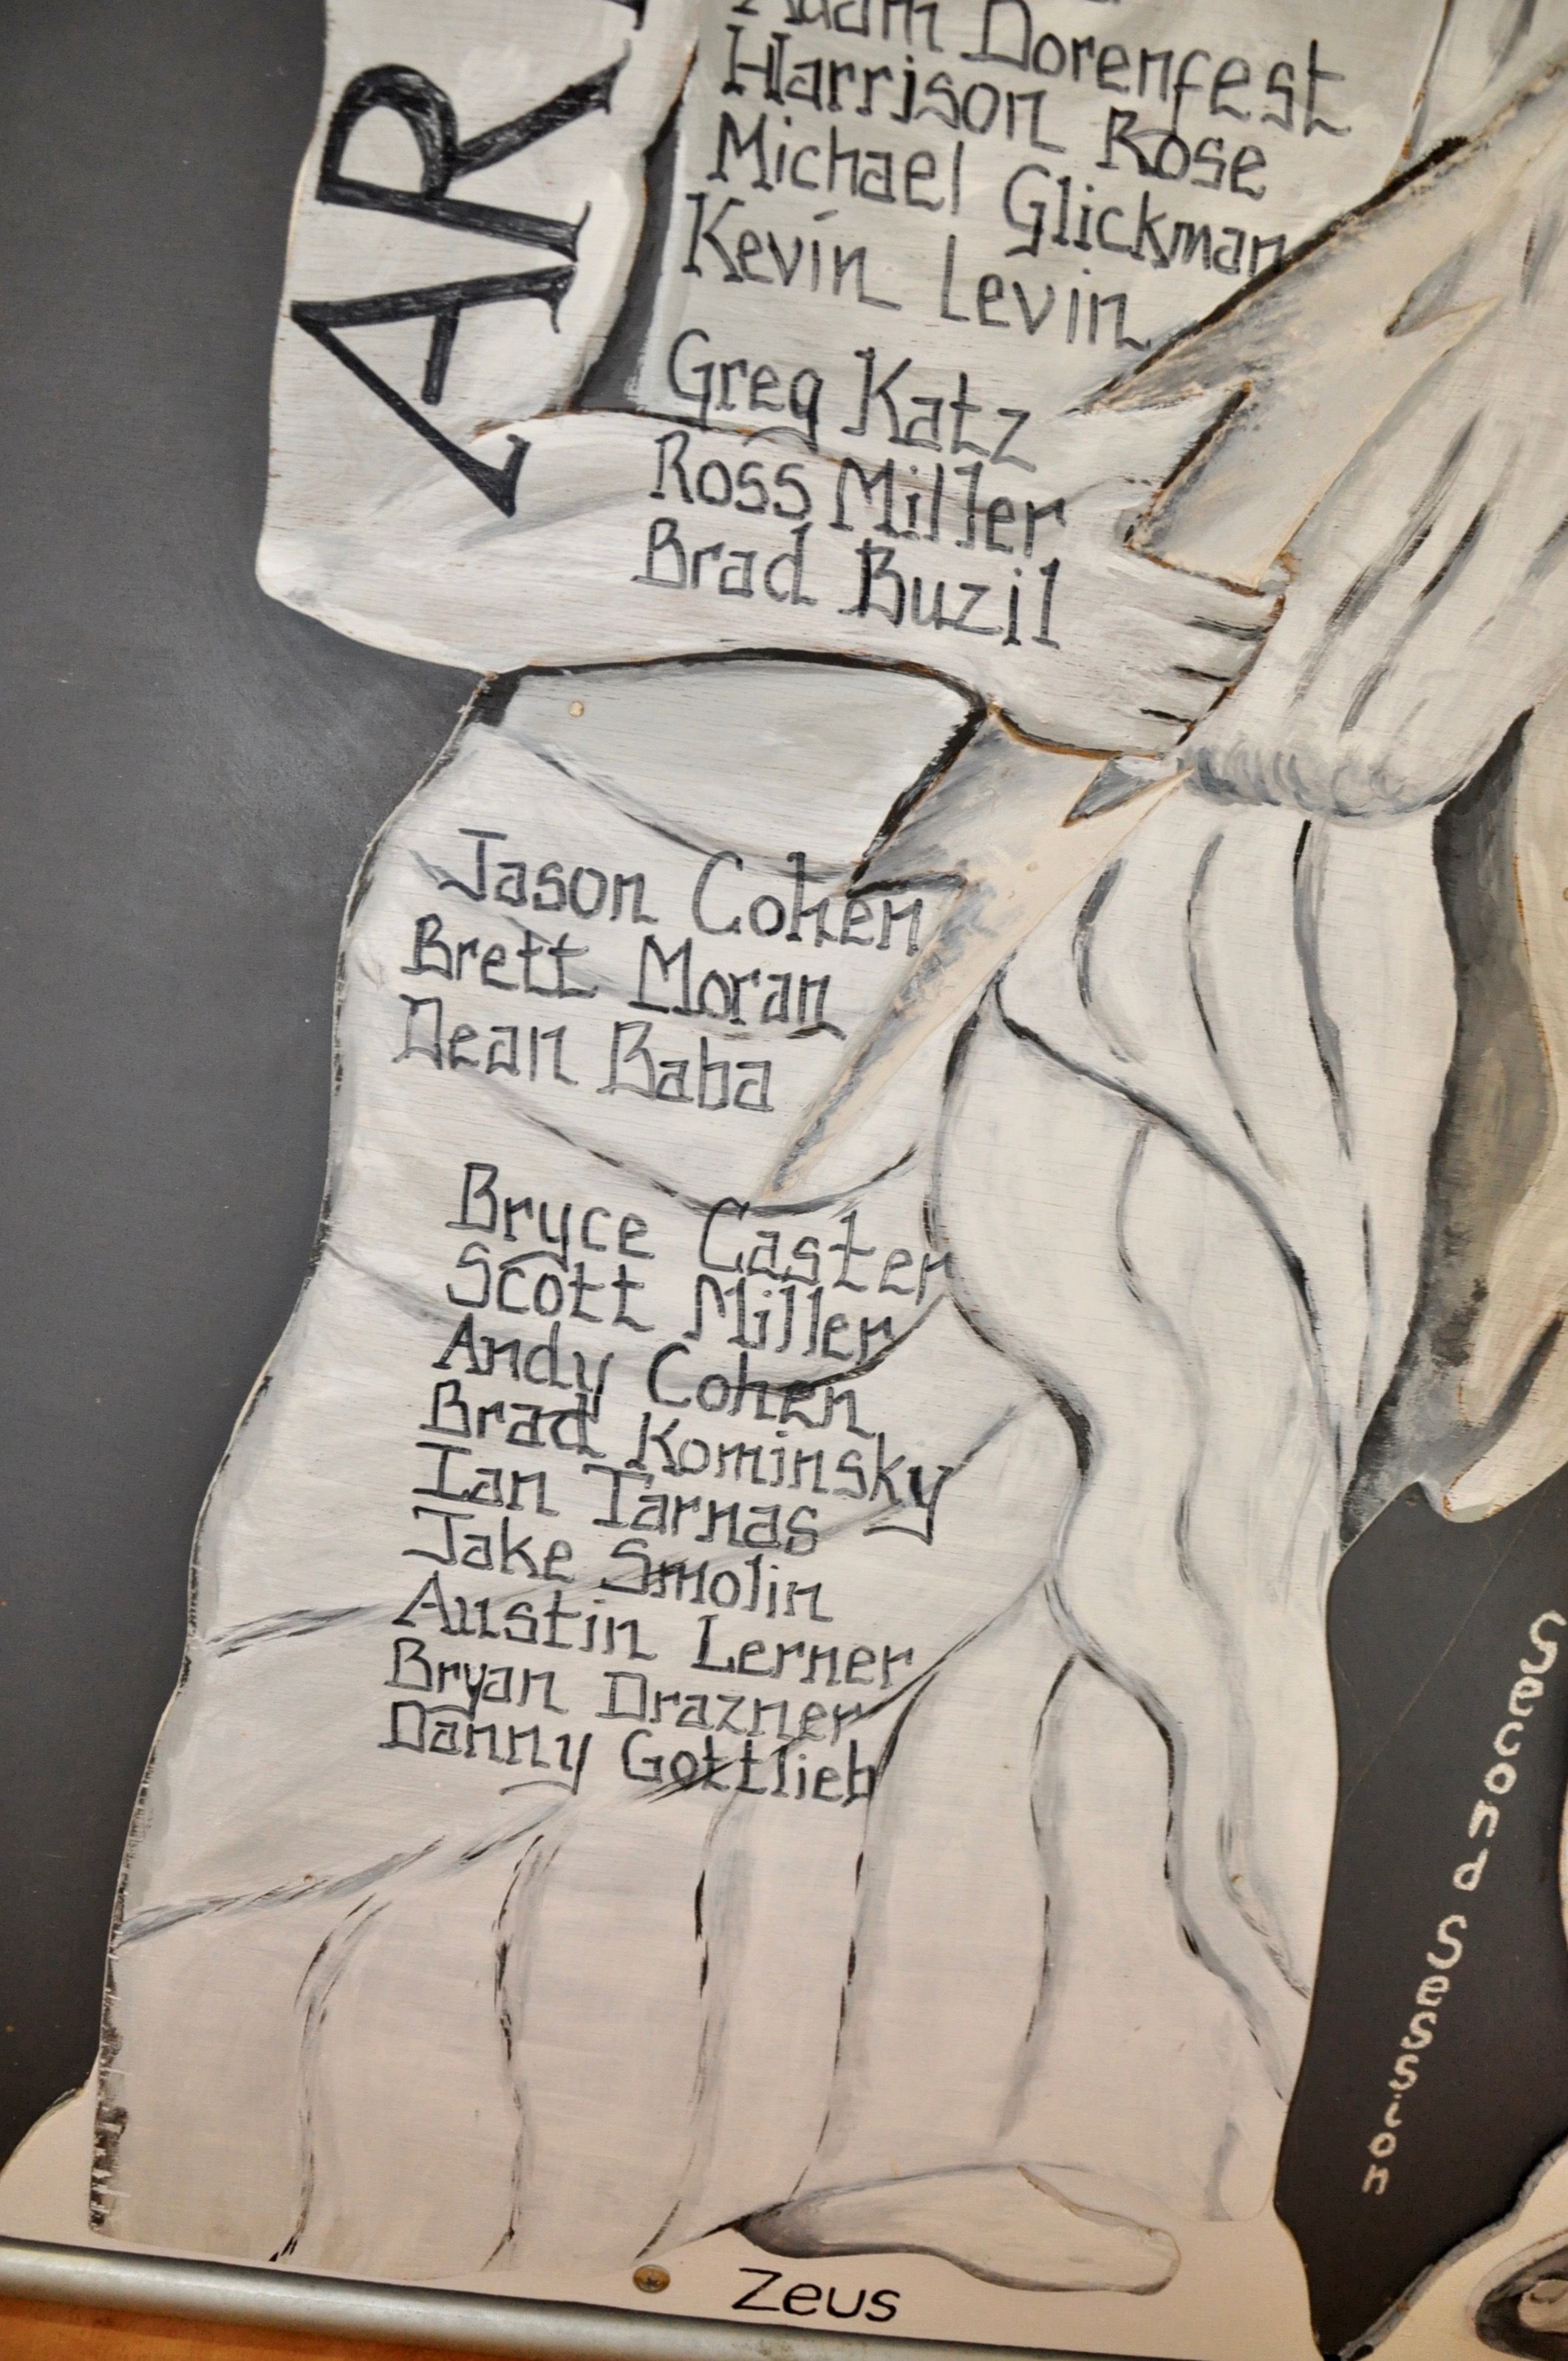 AR
Adam Dorenfest
Harrison Rose
Michael Glickman
Kevin Levin
Greg Katz
Ross Miller
Brad Buzil
Jason Cohen
Brett Moran
Dean Baba
Bryce Caster
Scott Miller
Andy Cohen
Brad Kominsky
Ian Tarnas
Jake Smolin
Austin Lerner
Bryan Drazner
Danny Gottlieb
Second Session
Zeus